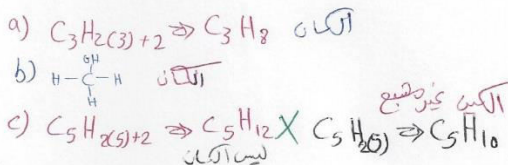 a) C₃H₂₍₃₎₊₂ ⇒ C₃H₈ الكان
b) H-C-H الكان
OH
H
الكين غير مشبع
c) C₅H₂₍₅₎₊₂ ⇒ C₅H₁₂ X C₅H₂₍₅₎ ⇒ C₅H₁₀
ليس الكان